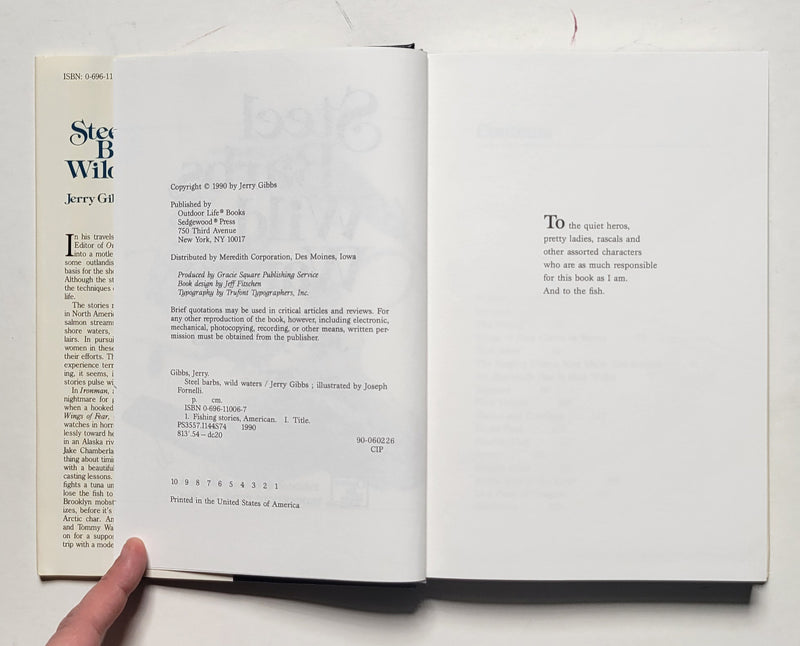 ISBN: 0-696-11
Stee
B
Wild
Jerry Gil
In his travels
Editor of Ou
into a motle
some outlandis
basis for the sho
Although the st
the techniques
life.
The stories r
in North Americ
salmon streams
shore waters,
lairs. In pursui
women in these
their efforts. Th
experience terr
ing, it seems, i
stories pulse wi
In Ironman,
nightmare for
when a hooked
Wings of Fear,
watches in horr
lessly toward he
in an Alaska riv
Jake Chamberla
thing about timi
with a beautiful
casting lessons.
fights a tuna un
lose the fish to
Brooklyn mobst
izes, before it's
Arctic char. An
and Tommy Wa
on for a suppo
trip with a mode
Copyright © 1990 by Jerry Gibbs
Published by
Outdoor Life® Books
Sedgewood® Press
750 Third Avenue
New York, NY 10017
Distributed by Meredith Corporation, Des Moines, Iowa
Produced by Gracie Square Publishing Service
Book design by Jeff Fitschen
Typography by Trufont Typographers, Inc.
Brief quotations may be used in critical articles and reviews. For
any other reproduction of the book, however, including electronic,
mechanical, photocopying, recording, or other means, written per-
mission must be obtained from the publisher.
Gibbs, Jerry.
Steel barbs, wild waters / Jerry Gibbs ; illustrated by Joseph
Fornelli.
p. cm.
ISBN 0-696-11006-7
1. Fishing stories, American. I. Title.
PS3557.I144S74 1990
813'.54—dc20
90-060226
CIP
10 9 8 7 6 5 4 3 2 1
Printed in the United States of America
To the quiet heros,
pretty ladies, rascals and
other assorted characters
who are as much responsible
for this book as I am.
And to the fish.